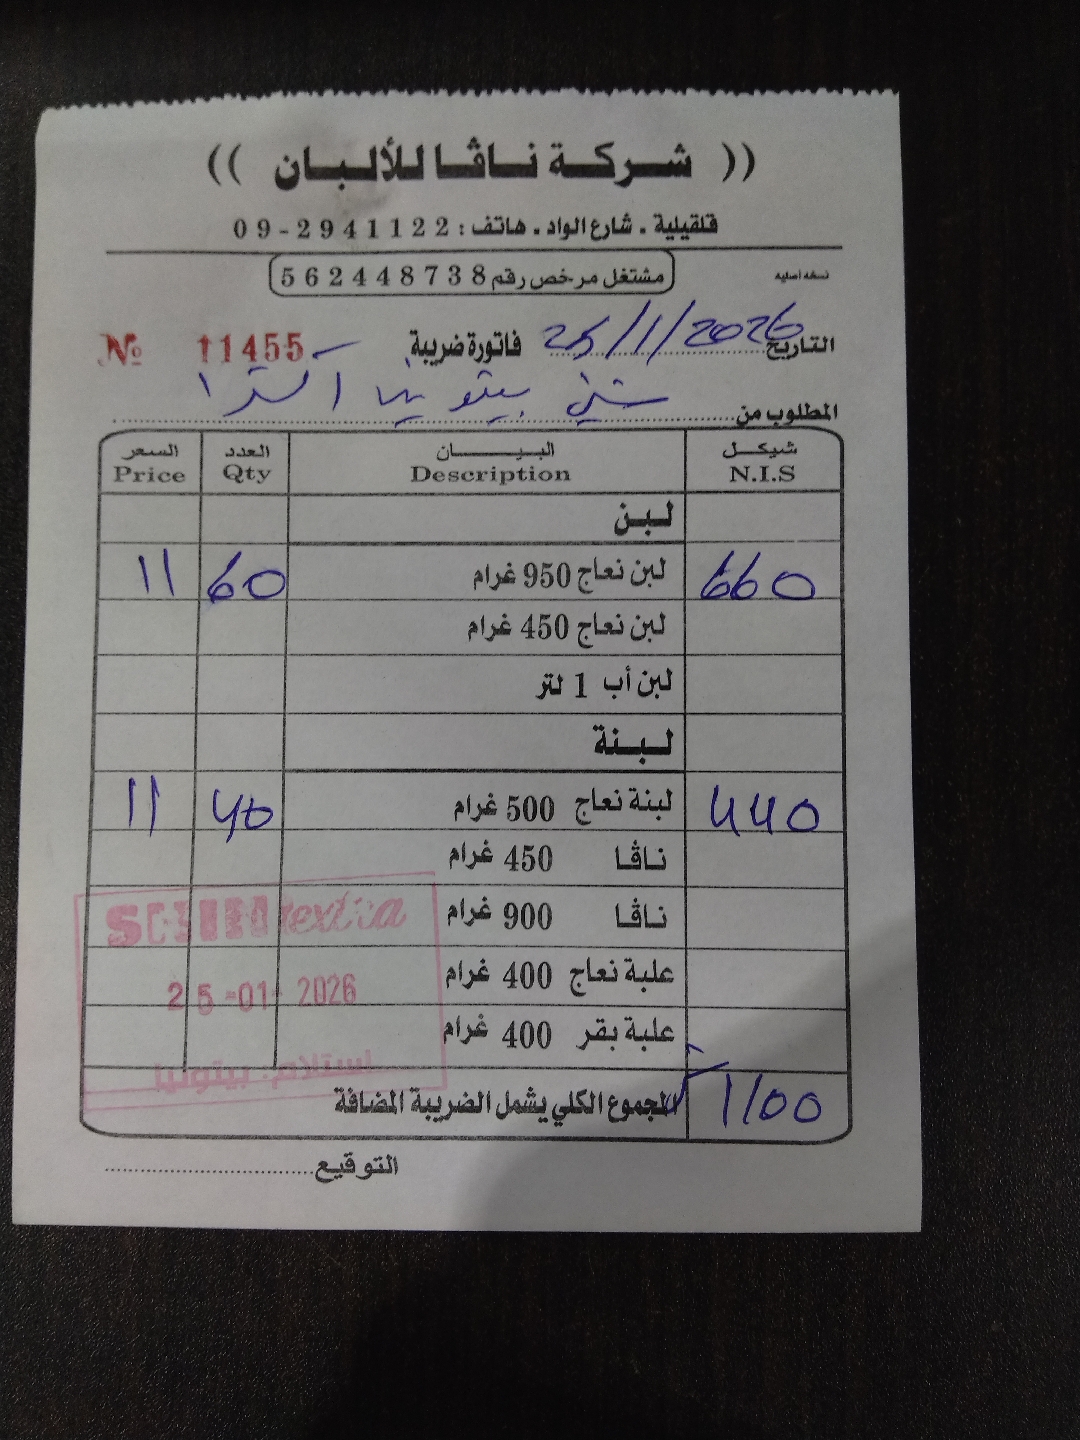 (( شركة ناڤا للألبان ))
قلقيلية . شارع الواد . هاتف : 09-2941122
مشتغل مرخص رقم 562448738
نسخه أصليه
التاريخ 25/1/2026 فاتورة ضريبة 11455 №
المطلوب من شني بيتونيا اكسترا
شيكل البيان العدد السعر
N.I.S Description Qty Price
لبن
660 لبن نعاج 950 غرام 60 11
لبن نعاج 450 غرام
لبن أب 1 لتر
لبنة
440 لبنة نعاج 500 غرام 40 11
ناڤا 450 غرام
ناڤا 900 غرام
extra
علبة نعاج 400 غرام
25-01-2026
علبة بقر 400 غرام
استلام. بيتونيا
1100 المجموع الكلي يشمل الضريبة المضافة
التوقيع